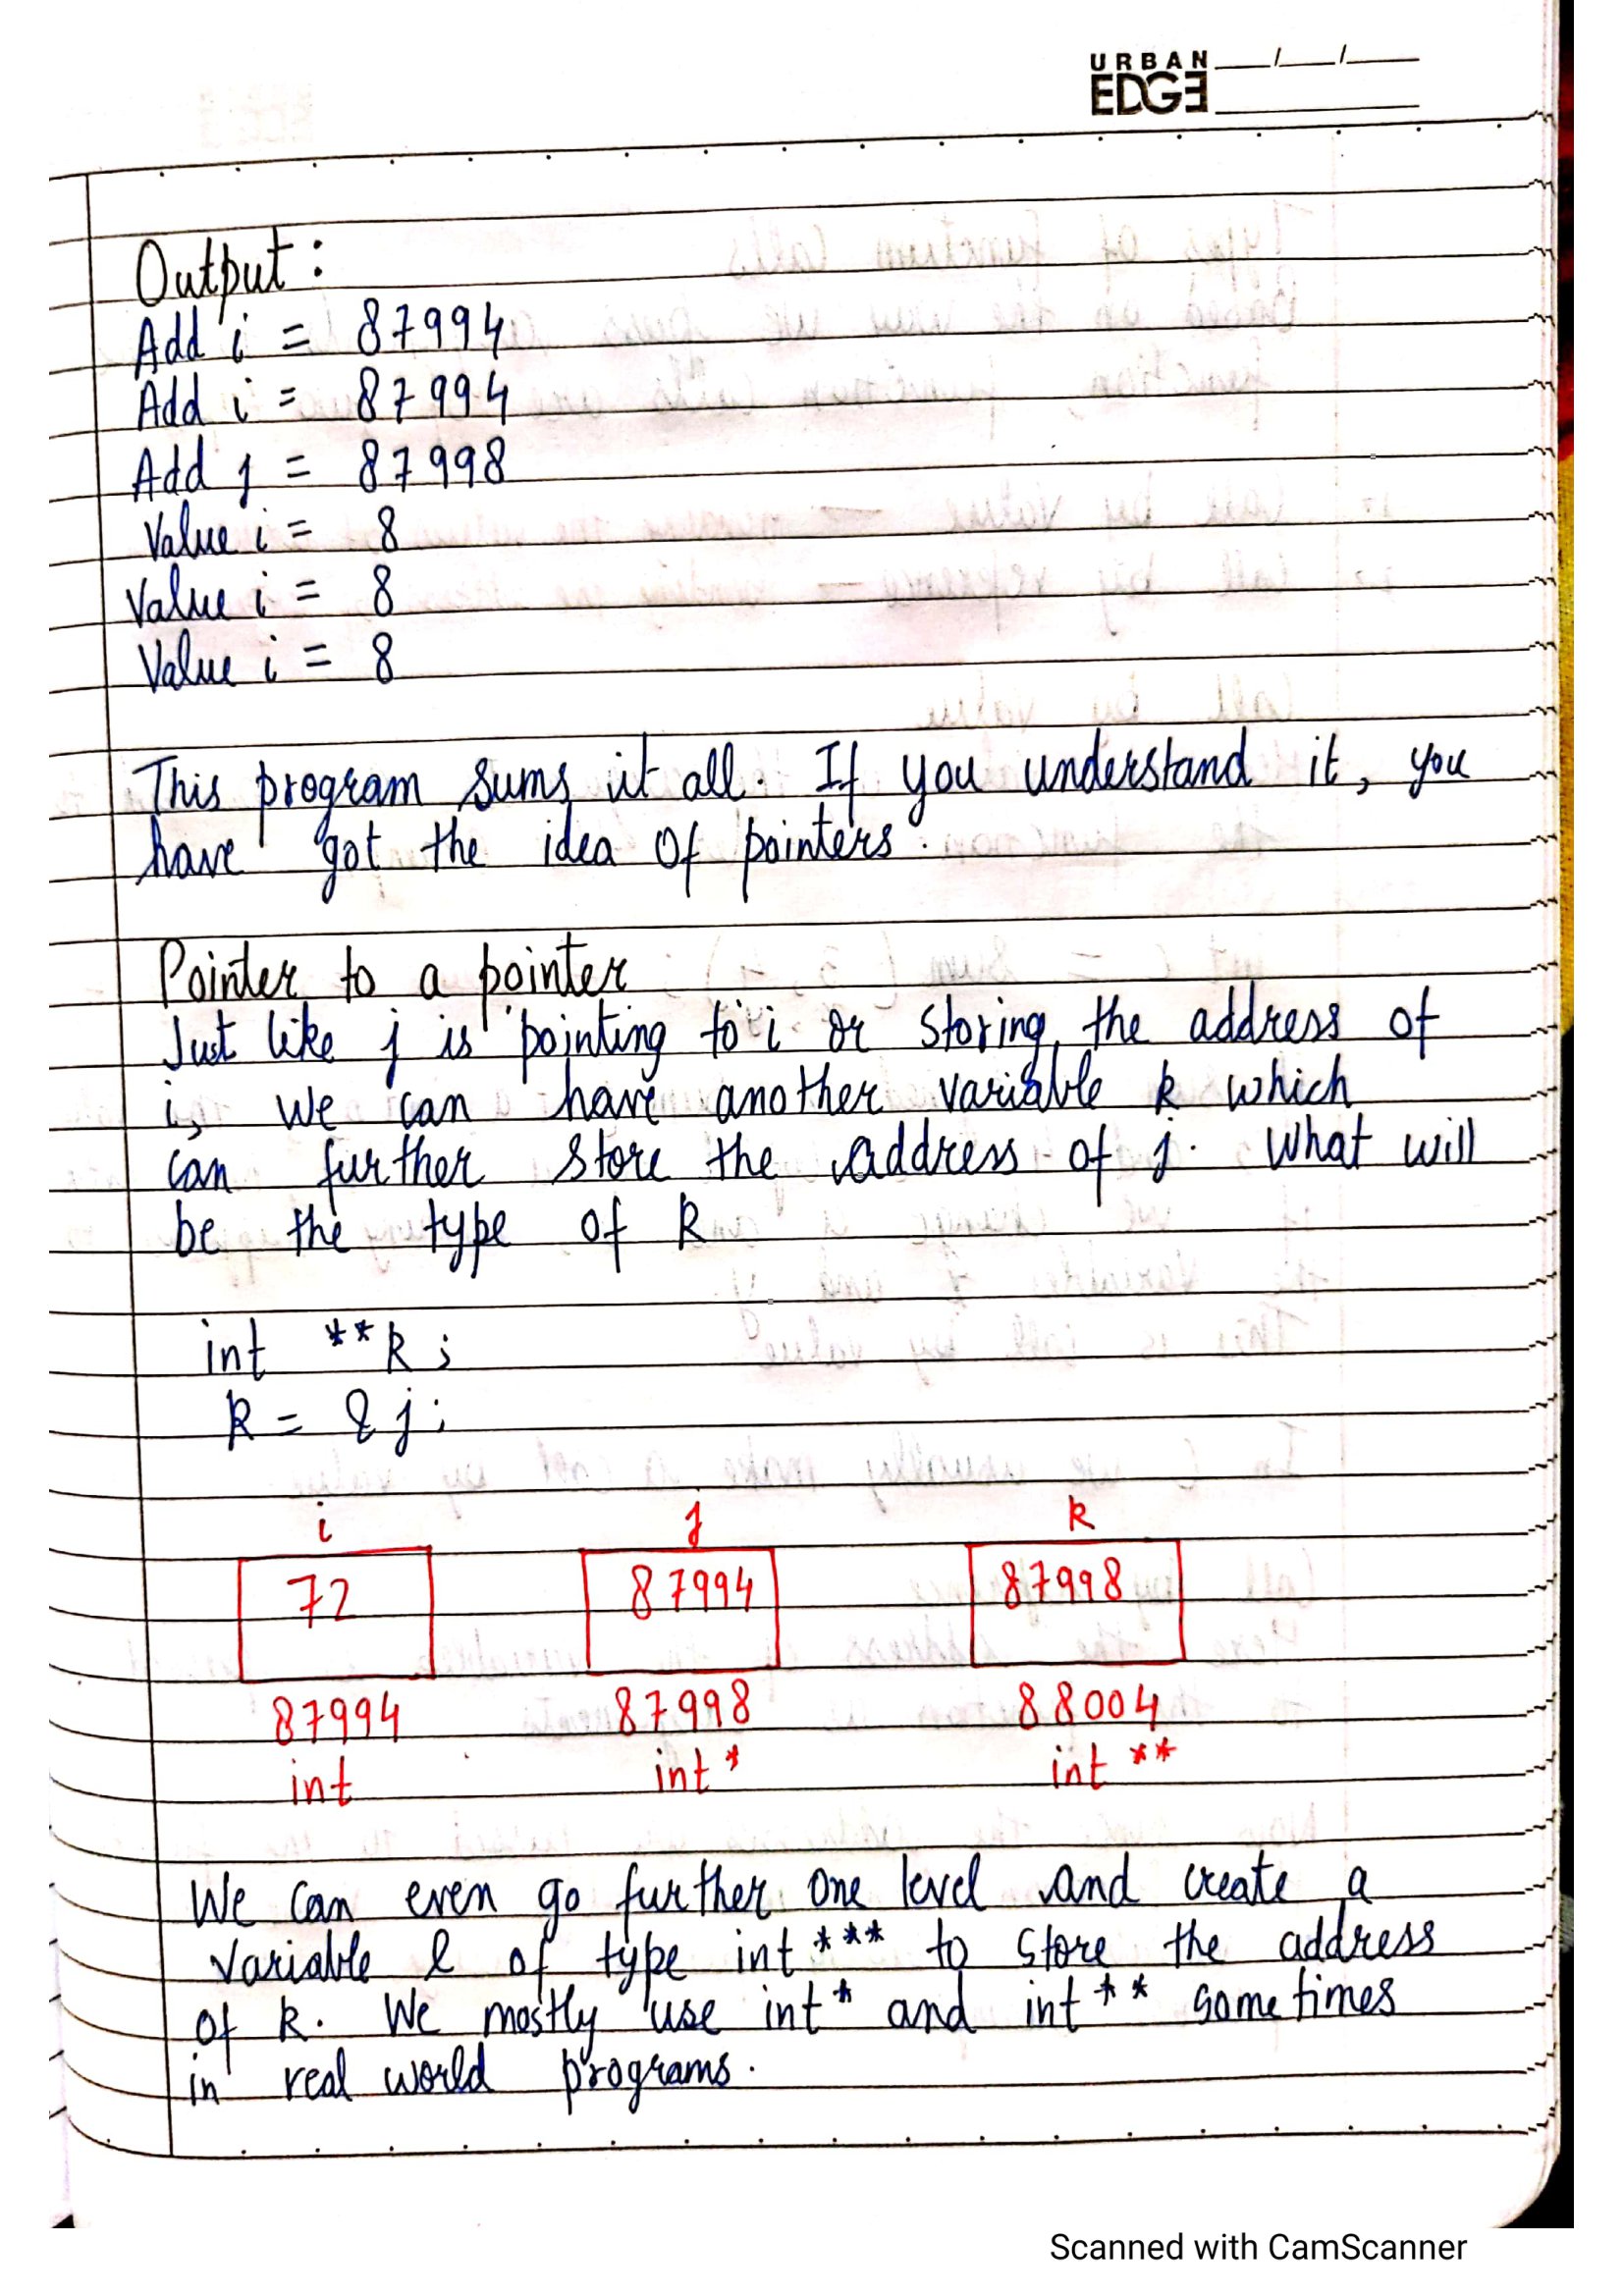 URBAN
EDGE
Output :
Add i = 87994
Add i = 87994
Add j = 87998
Value i = 8
Value i = 8
Value i = 8
This program sums it all. If you understand it, you
have got the idea of pointers.
Pointer to a pointer
Just like j is pointing to i or storing the address of
i, we can have another variable k which
can further store the address of j. What will
be the type of k
int **k;
k = &j;
i j k
72 87994 87998
87994 87998 88004
int int* int **
We can even go further one level and create a
variable l of type int*** to store the address
of k. We mostly use int* and int** sometimes
in real world programs.
Scanned with CamScanner